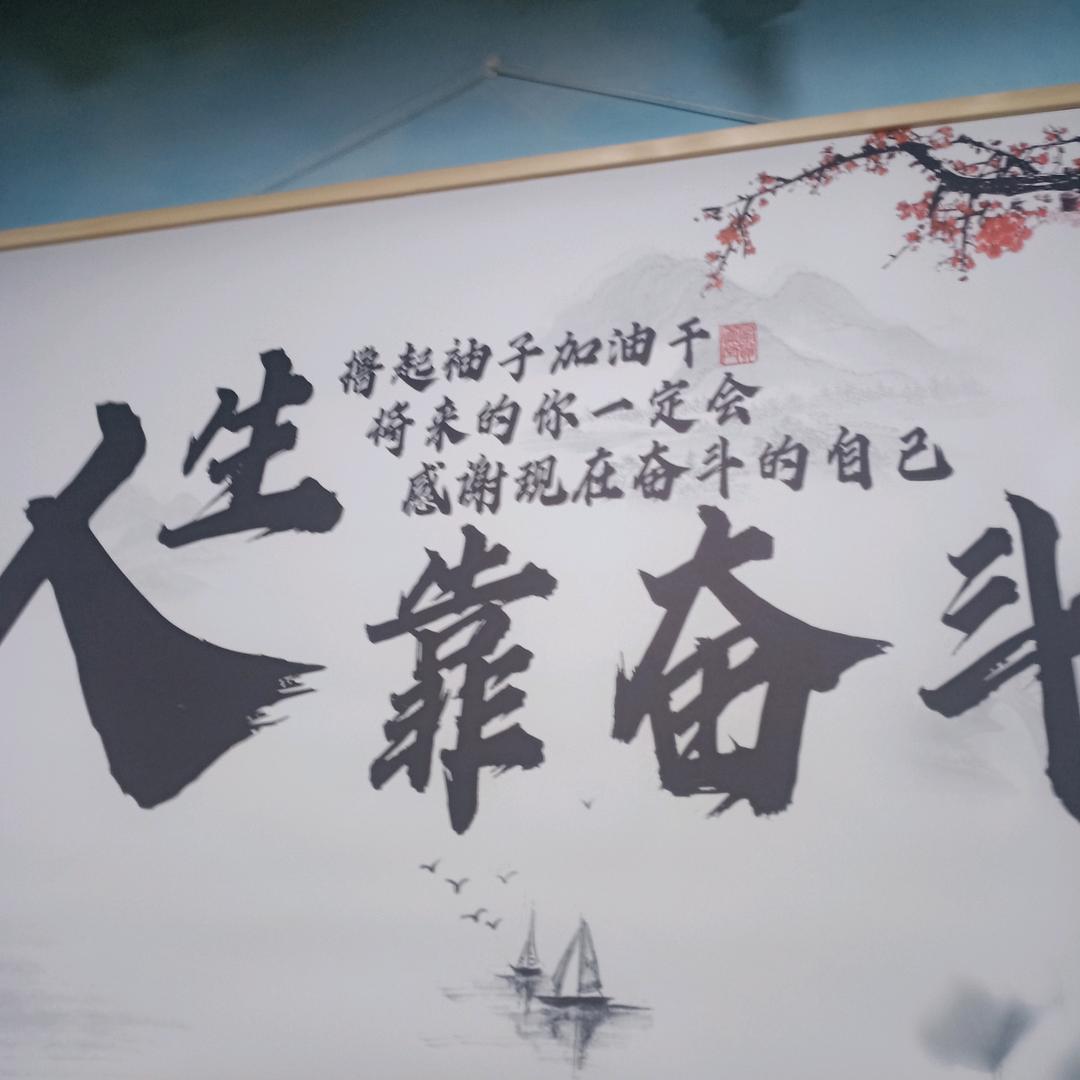 人生靠奋斗
撸起袖子加油干
将来的你一定会
感谢现在奋斗的自己